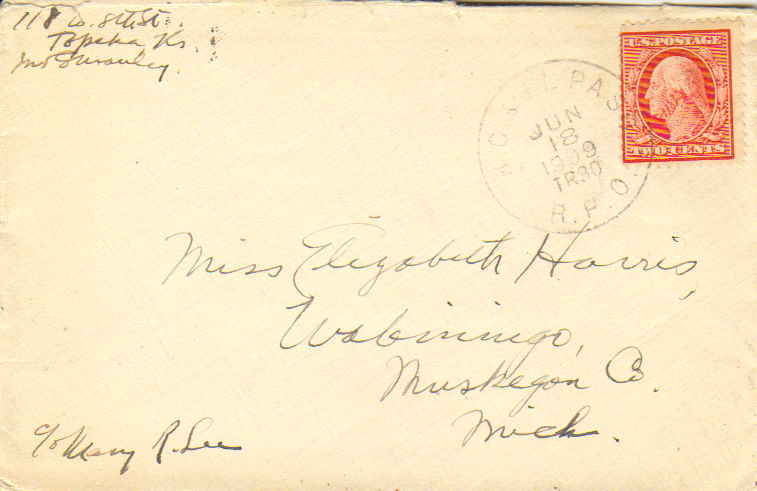 118 W. 8th St.
Topeka Ks.
U.S. POSTAGE
TWO CENTS
PAS
JUN
18
1909
TR30
R.P.O.
Miss Elizabeth Harris,
Wabiningo,
Muskegon Co.
Mich.
c/o Mary R. Lee